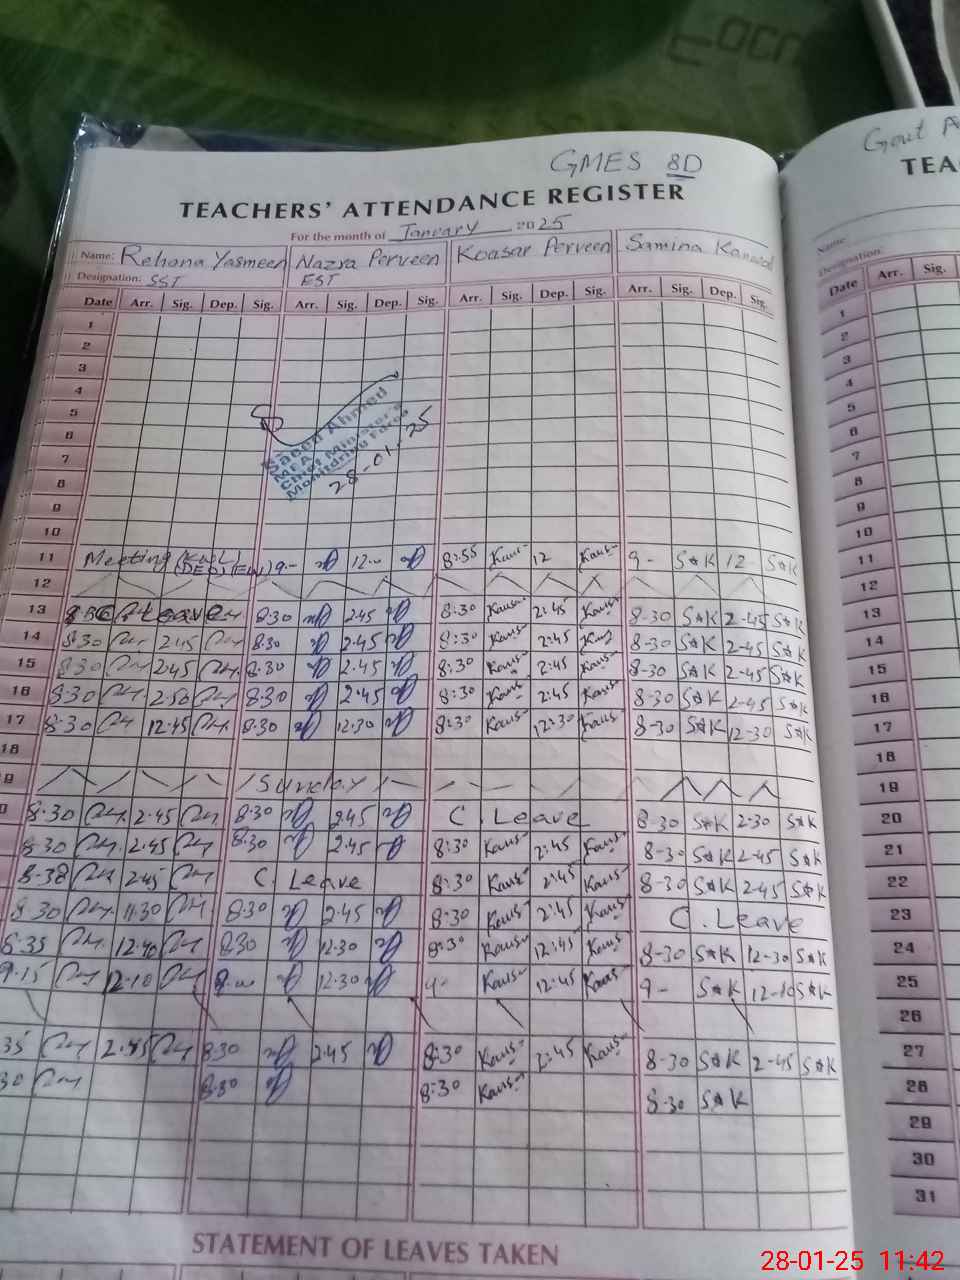 GMES 8D
Gout A
TEACHERS' ATTENDANCE REGISTER
TEA
For the month of January 2025
Name: Rehana Yasmeen Nazra Perveen Koasar Perveen Samina
Name
Designation: SST EST
Designation:
Date Arr. Sig. Dep. Sig. Arr. Sig. Dep. Sig. Arr. Sig. Dep. Sig. Arr. Sig. Dep. Sig.
Date Arr. Sig.
1 1
2 2
3 3
4 4
5 5
6 6
7 7
8 8
9 9
10 10
Saeed Ahmed
MEA
Chief Minister's
Monitoring Force
28-01-25
11 Meeting 9- 12- 8:55 Kaus- 12 Kaus- 9- S*K 12- S*K 11
12 12
13 Leave 8:30 2:45 8:30 Kaus- 2:45 Kaus- 8-30 S*K 2-45 S*K 13
14 8:30 2:45 8:30 2.45 8:30 Kaus- 2:45 8-30 S*K 2-45 S*K 14
15 8:30 2:45 8:30 2.45 8:30 Kaus- 2:45 Kaus- 8-30 S*K 2-45 S*K 15
16 8:30 2:50 8:30 2:45 8:30 Kaus- 2:45 Kaus- 8-30 S*K 2-45 S*K 16
17 8:30 12:45 8:30 12:30 8:30 Kaus- 12:30 Kaus- 8-30 S*K 12-30 S*K 17
18 18
Sunday 19
8.30 2.45 8:30 2:45 C. Leave 8-30 S*K 2-30 S*K 20
8:30 2.45 8:30 2.45 8:30 Kaus- 2:45 Kaus- 8-30 S*K 2-45 S*K 21
8-38 2:45 C. Leave 8:30 Kaus- 2:45 Kaus- 8-30 S*K 2-45 S*K 22
8:30 11:30 8:30 2.45 8:30 Kaus- 2:45 Kaus- C. Leave 23
8:35 12:40 8:30 12:30 8:30 Kaus- 12:45 Kaus- 8-30 S*K 12-30 S*K 24
9.15 12.10 12:30 9- Kaus- 12:45 Kaus- 9- S*K 12-10 S*K 25
26
35 2.45 8:30 2.45 8:30 Kaus- 2:45 Kaus- 8-30 S*K 2-45 S*K 27
30 8:30 8:30 Kaus- 8-30 S*K 28
29
30
31
STATEMENT OF LEAVES TAKEN
28-01-25 11:42